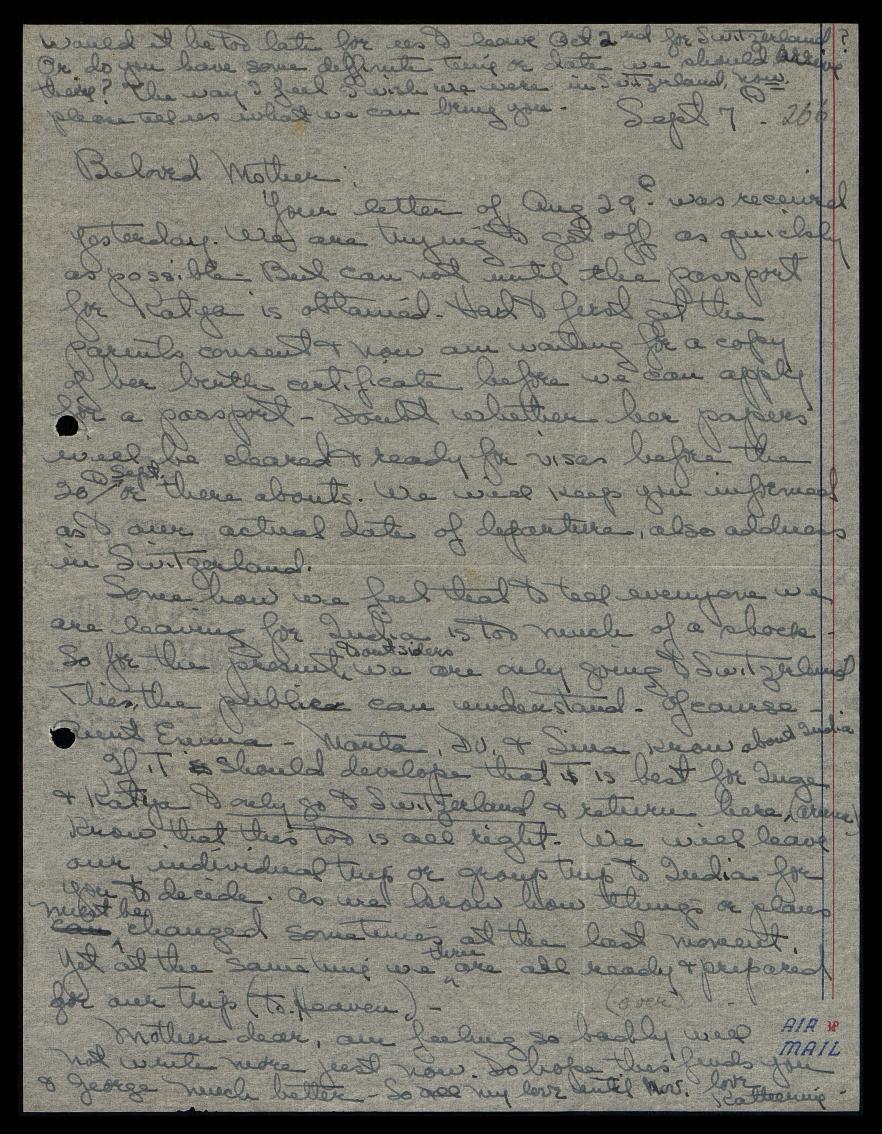 Would it be too late for us to leave Oct 2nd for Switzerland?
Or do you have some deffinite time or date we should arrive
there? The way I feel I wish we were in Switzerland, now.
please tell us what we can bring you.
Sept 7th 266
Beloved Mother:
Your letter of Aug 29th was received
yesterday. We are trying to get off as quickly
as possible - But can not until the passport
for Katya is obtained. Had to first get the
parents consent & now am waiting for a copy
of her birth certificate before we can apply
for a passport - Doubt whether her papers
will be cleared & ready for visas before the
20th Sept. or there abouts. We will keep you informed
as to our actual date of departure, also address
in Switzerland.
Some how we feel that to tell everyone we
are leaving for India is too much of a shock -
So for the present, to outsiders we are only going to Switzerland
This, the public can understand. Of course -
Aunt Emma - Manta, Du. & Sina, know about India
If it should develope that it is best for Inge
& Katya to only go to Switzerland & return here,
know that this too is all right. We will leave
our individual trip or group trip to India for
you to decide. As we know how things or plans
must be changed sometimes at the last moment.
Yet at the same time we three are all ready & prepared
for our trip (to Heaven) -
(over)
Mother dear, am feeling so badly will
not write more just now. Do hope this finds you
& George much better - So all my love until Nov. love
Katherine -
AIR
MAIL